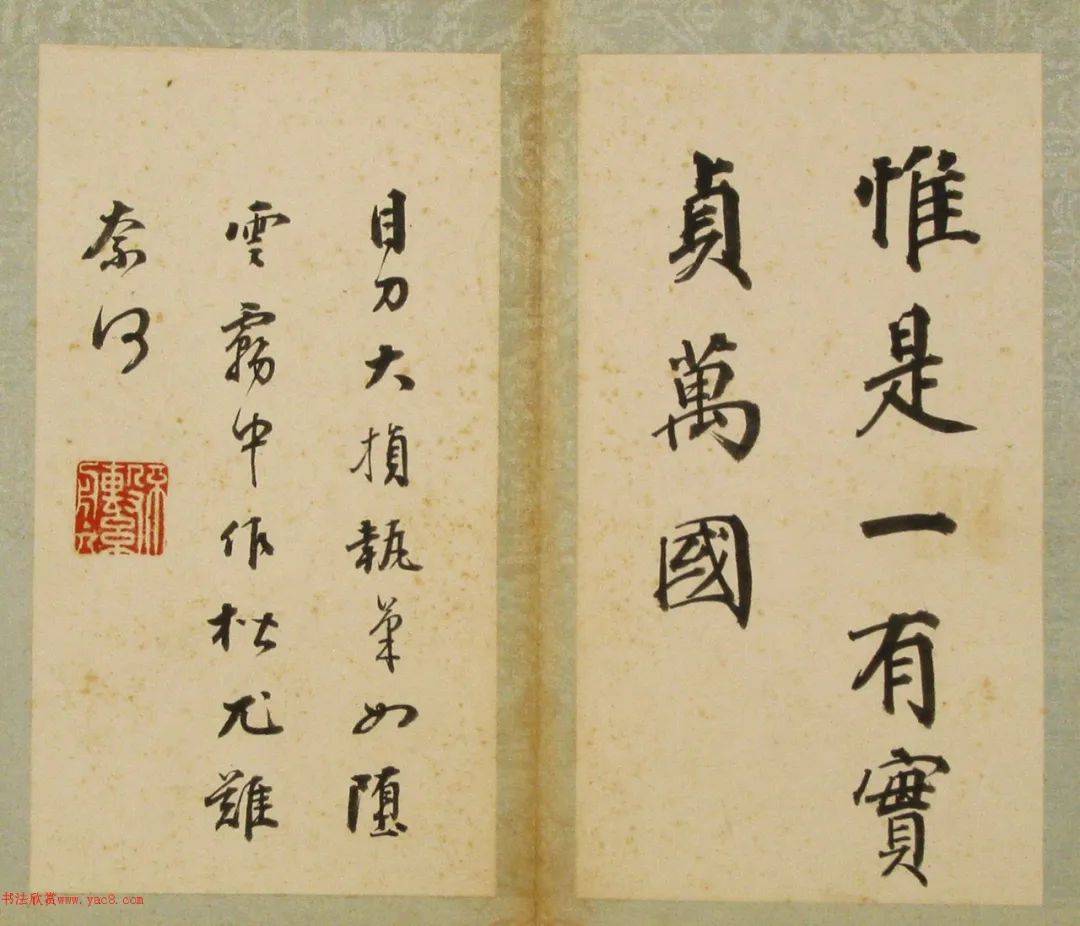 惟是一有實
貞萬國
目力大損執筆如墮
雲霧中作楷尤難
奈何
书法欣赏www.yac8.com